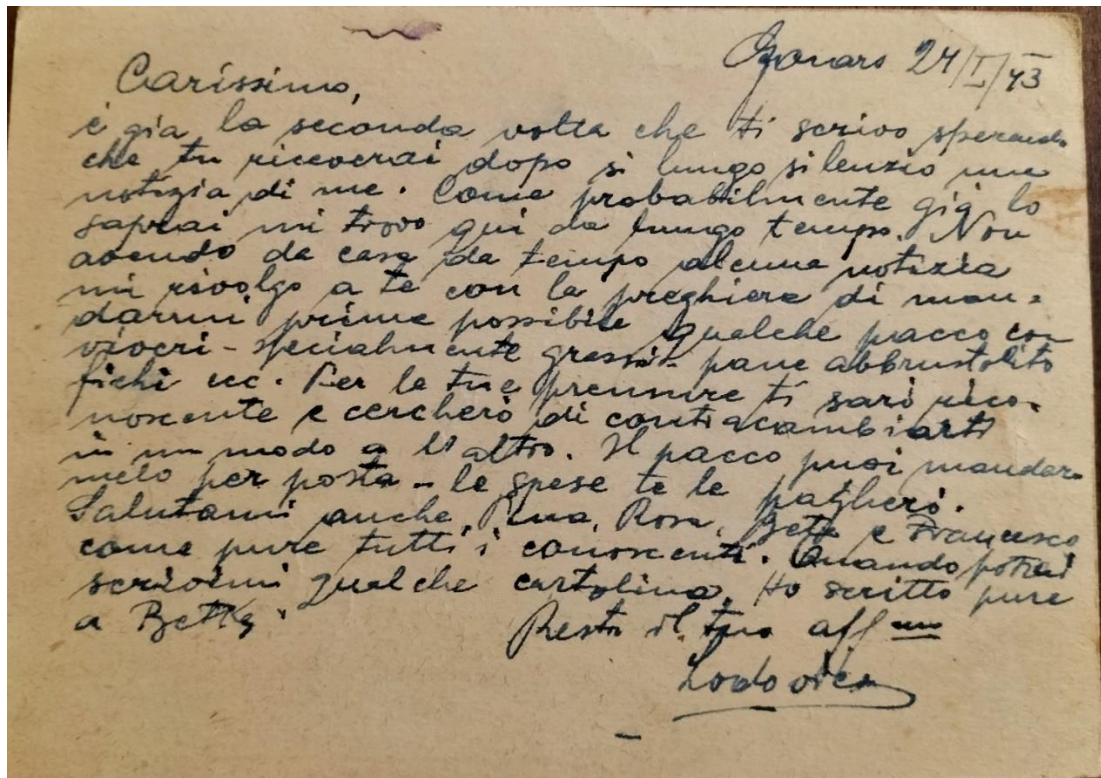 Gonars 24/I/43
Carissimo,
è già la seconda volta che ti scrivo sperando
che tu riceverai dopo si lungo silenzio una
notizia di me. Come probabilmente già lo
saprai mi trovo qui da lungo tempo. Non
avendo da casa da tempo alcuna notizia
mi rivolgo a te con la preghiera di man=
darmi prima possibile qualche pacco con
viveri - specialmente grassi - pane abbrustolito
fichi ecc. Per le tue premure ti sarò rico=
noscente e cercherò di contracambiarti
in un modo o l'altro. Il pacco puoi mandar=
melo per posta - le spese te le pagherò.
Salutami anche, Rosa, e Francesco
come pure tutti i conoscenti. Quando potrai
scrivimi qualche cartolina. Ho scritto pure
a
Resto il tuo aff mo
Lodovico